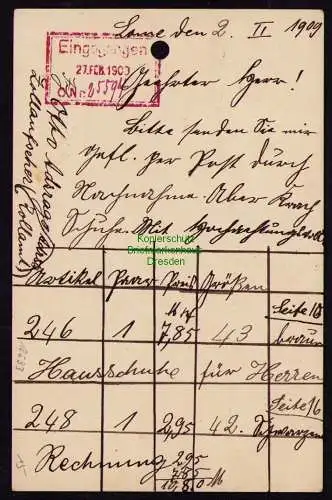 den 2. II 1909
Eingegangen
27. FEB. 1909
Geehrter Herr!
Bitte senden Sie mir
gefl. per Post durch
Nachnahme. Aber Krach
Schuhe. Mit Hochachtungsvoll
Otto
Kopierschutz
Briefmarkenhaus
Dresden
Artikel Paar Preis Größen
M Pf Seite 18
246 1 7,85 43 braun
Hausschuhe für Herren
Seite 16
248 1 2,95 42. Schwarzen
Rechnung 2,95
7,85
10,80 M